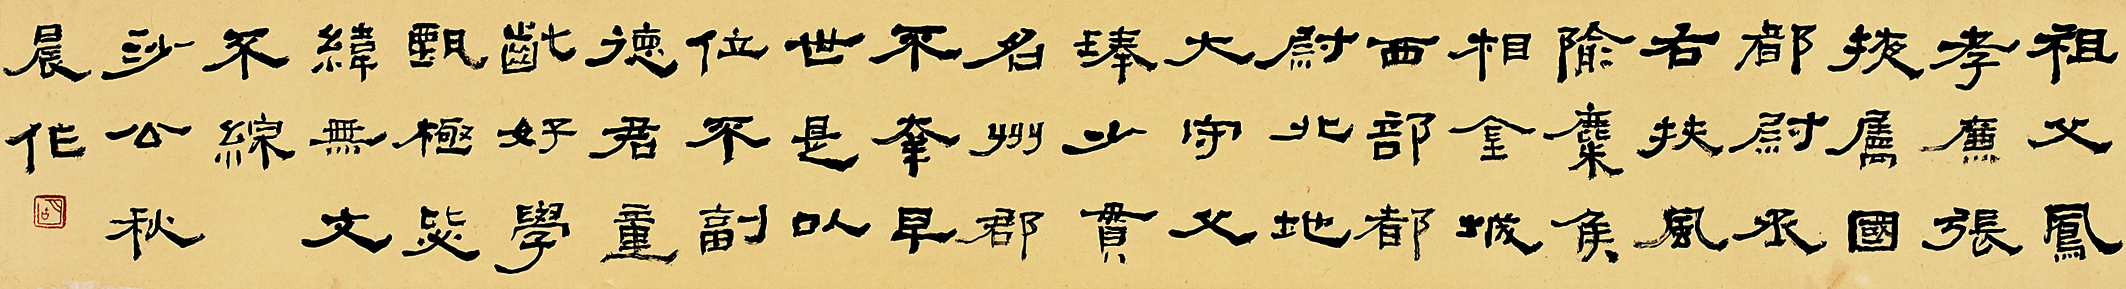 祖父鳳
孝廉張
掖屬國
都尉丞
右扶風
隃麋侯
相金城
西部都
尉北地
大守父
琫少貫
名州郡
不幸早
世是以
位不副
德君童
齔好學
甄極毖
緯無文
不綜
沙公秋
晨作